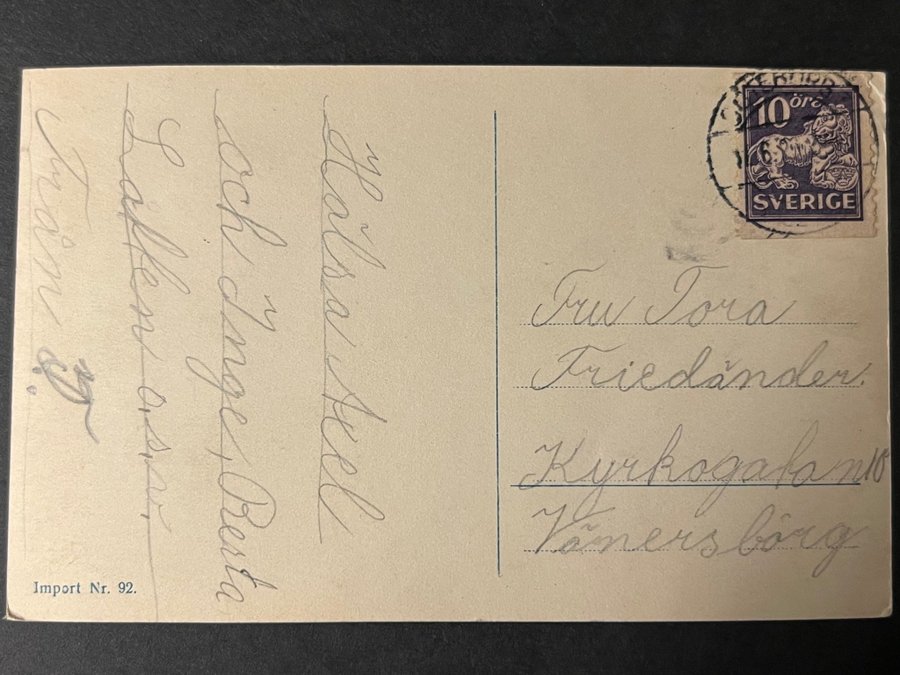 Hälsa Axel
och Inge, Berta
o.s.v.
Från
Import Nr. 92.
10 öre
SVERIGE
Fru Tora
Friedänder.
Kyrkogatan 10
Vänersborg